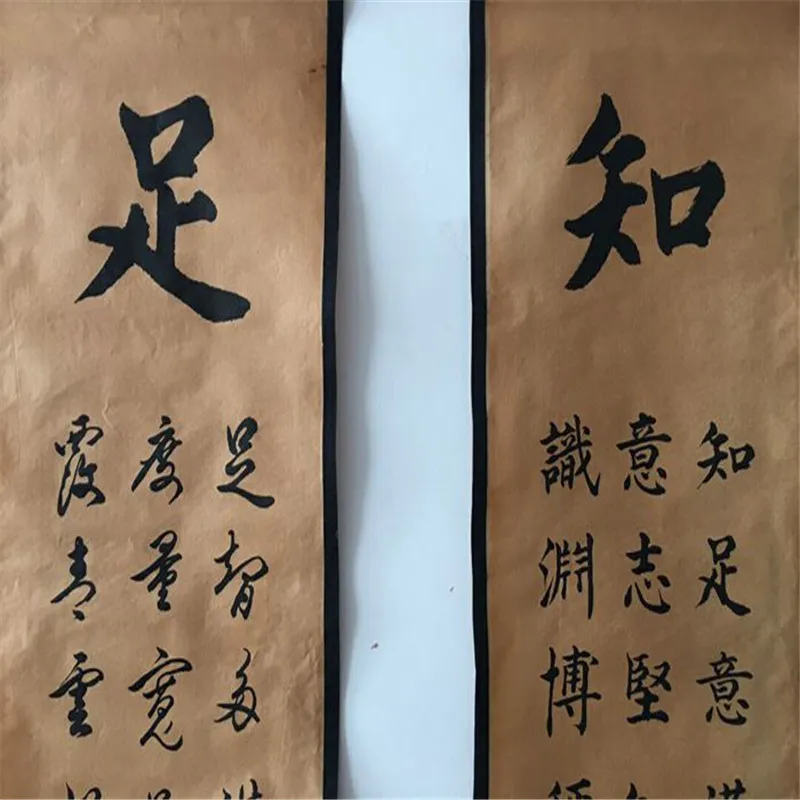 知
知足意
意志堅
識淵博
足
足智多
度量寬
霞青雲